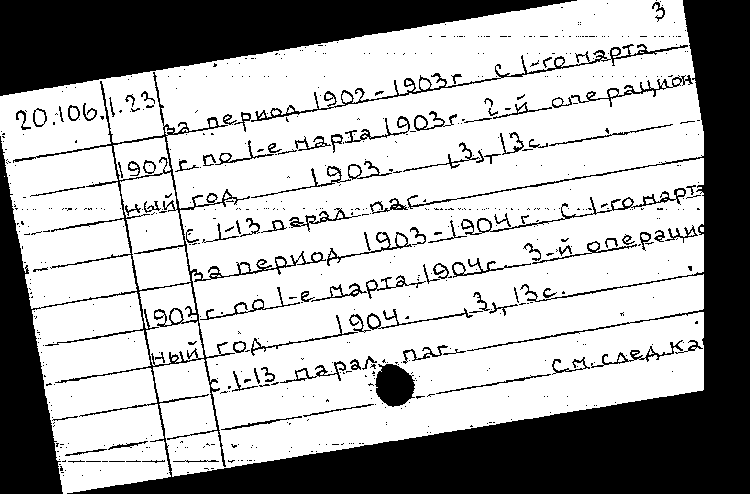 3
20.106.1.23. за период 1902-1903г. с 1-го марта
1902 г. по 1-е марта 1903г. 2-й операцион-
ный год. 1903. [3], 13с.
с. 1-13 парал. паг.
за период 1903-1904 г. с 1-го марта
1903 г. по 1-е марта 1904г. 3-й операцио
ный год. 1904. [3], 13с.
с. 1-13 парал. паг.
см. след. ка